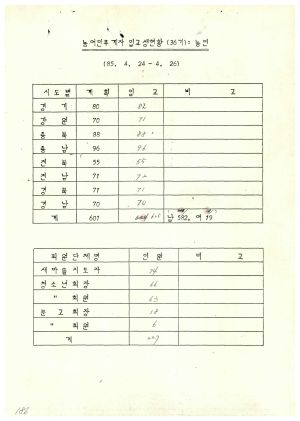 농어민후계자 입교생현황 (36기): 농민
(85. 4. 24 - 4. 26)
시도별 계획 입교 비고
경기 80 82
강원 70 71
충북 88 88
충남 96 96
전북 55 55
전남 71
경북 71 71
경남 70 70
계 601 605 남 582, 여 19
회원단체명 인원 비고
새마을지도자 74
청소년회장 66
" 회원 63
농고회장 18
" 회원 6
계
186